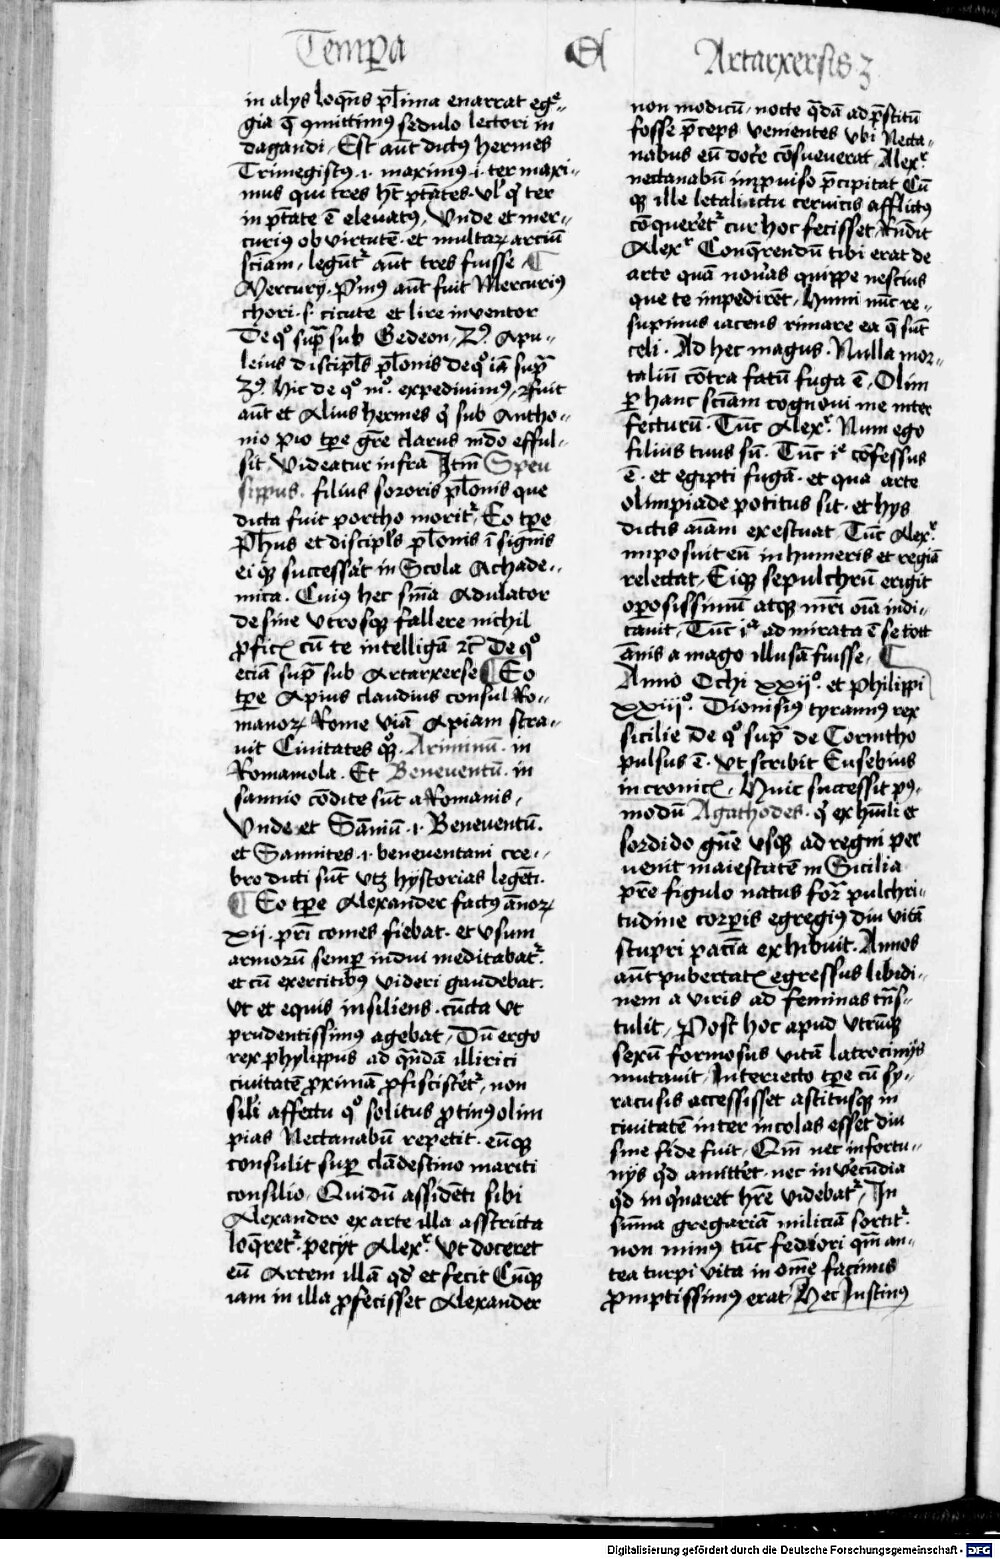 Temp̄a Et Artarxersis 3
in alys loq̄ns pl̄ima enarrat eḡe-
gia q̄ ꝯmittimꝰ sedulo lectori in
dagandi. Est aūt dictꝰ hermes
Trimegistꝰ .i. maximꝰ .i. ter maxi-
mus qui tres hꝫ ptātes. vl̓ qͥ ter
in ptāte ē eleuatꝰ, Vnde et mer-
curiꝰ ob virtutē. et multaꝝ arciū
sciam, legūtᷣ aūt tres fuisse ¶
Mercury. p̓mꝰ aūt fuit Mercuriꝰ
chori .s. cicute et lire inventor
De qͦ sup̄ sub Gedeon, 2ꝰ Apu-
leius discipl̓s pl̄onis de qͦ iā sup̄
3ꝰ hic de qͦ mͦ expediuimꝰ, fuit
aūt et Alius hermes qͥ sub Antho-
nio pio tꝑe gr̄e clarus mdo efful-
sit. Videatur infra Itm̄ Speu
sippus. filius sororis pl̄onis que
dicta fuit portho moritᷣ, Eo tꝑe
Ph̄us et discipl̓s pl̄onis ī signis
ei qͥ successat̓ in Scola Achade-
mica. Cuiꝰ hec sn̄ia Adulator
desine vtrosqꝫ fallere nichil
ꝓficꝭ cū te intelligā ⁊c̄ De qͦ
eciā sup̄ sub Artarxerse ¶ Eo
tꝑe Apius claudius consul Ro-
manoꝝ Rome viā Apiam stra-
uit Ciuitates qͦꝫ. Ariminū. in
Romamola. Et Beneuentū. in
samio cōdite sūt a Romanis,
Vnde et Samiū .i. Beneuentū.
et Samites .i. beneuentani cre-
bro dicti sūt vtꝫ hystorias legēti.
¶ Eo tꝑe Alexander factꝰ ānoꝝ
xii. pr̄i comes fiebat. et vsum
armorū semꝑ indui meditabatᷣ.
et cū exercitibꝰ videri gaudebat.
vt et equis insiliens. cūcta vt
prudentissimꝰ agebat, Dū ergo
rex phylippus ad qͣndā illirici
ciuitatē ꝓximā ꝓfisciscēt̓, non
sili̓ affectu qͦ solitus ꝓtinꝰ olim
pias Nectanabū repetit. eūqꝫ
consulit suꝑ clādestino mariti
consilio, Quidū assidēti sibi
Alexandro ex arte illa asstricta
loq̄retᷣ. pecyt Alexᷣ. vt doceret
eū Artem illā qd̓ et fecit Cūqꝫ
iam in illa ꝓfecisset Alexander
non modicū, nocte qͣdā ad p̄stitū
fosse p̄ceps venientes vbi Necta-
nabus eū doce̓ cōsueuerat, Alexᷣ
nectanabū inꝓuiso p̄cipitat Cū
qꝫ ille letali ictu ceruicis afflictꝰ
cōqueretᷣ cur hoc fecisset, Rn̄dit
Alexᷣ Conq̄rendū tibi erat de
arte quā noūas quippe nescius
que te impedirēt, Humi nūc re-
supinus iacens rimare ea q̄ sūt
celi. Ad hec magus. Nulla mor-
taliū cōtra fatū fuga ē, Olim
ꝑ hanc sciam cognoui me inter
fecturū. Tūc Alexᷣ. Num ego
filius tuus sū. Tūc iͥ cōfessus
ē. et egipti fugā. et qua arte
olimpiade potitus sit. et hys
dictis aīam exestuat, Tūc Alexᷣ
imposuit eū in humeris et regiā
relectat, Eiqꝫ sepulchrū erigit
oꝑosissimū atqꝫ mr̄i oīa indi-
cauit, Tūc iͣ ad mirata ē se tott
ānis a mago illusā fuisse, ¶
Anno Ochi xxiiͦ. et philippi
xxiiiͦ. Dionisiꝰ tyrannꝰ rex
sicilie de qͦ sup̄ de Corintho
pulsus ē. vt scribit Eusebius
in cronicꝭ, Huic successit pꝰ-
modū Agathodes. qͥ ex hūili et
sordido gn̄e vsqꝫ ad regni per
uenit maiestatē in Sicilia
pr̄e figulo natus for̄ pulchri-
tudine corꝑis egregiꝰ diu vitā
stupri pacīa exhibuit. Annos
aūt pubertatꝭ egressus libidi-
nem a viris ad feminas trās-
tulit, Post hoc apud vtrūqꝫ
sexū formosus vitā latrocinijs
mutauit, Interiecto tꝑe cū sy-
racusis accessisset astitūsqꝫ in
ciuitatē inter incolas esset diu
sine fide fuit, Qm̄ nec infortu-
nijs qd̓ amitter̓et. nec in vecūdia
qd̓ inqͥnaret hr̄e videbatᷣ, In
sūma gregariā miliciā sortitᷣ.
non minꝰ tūc sediciori qm̄ an-
tea turpi vita in om̄e facinus
ꝓmptissimꝰ erat, Hec Justinꝰ
Digitalisierung gefördert durch die Deutsche Forschungsgemeinschaft - DFG